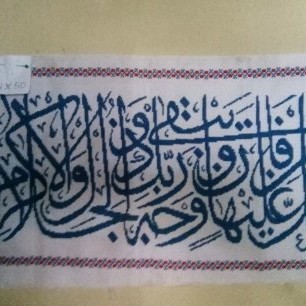 عليها فان ويبقى وجه ربك ذو الجلال والاكرام